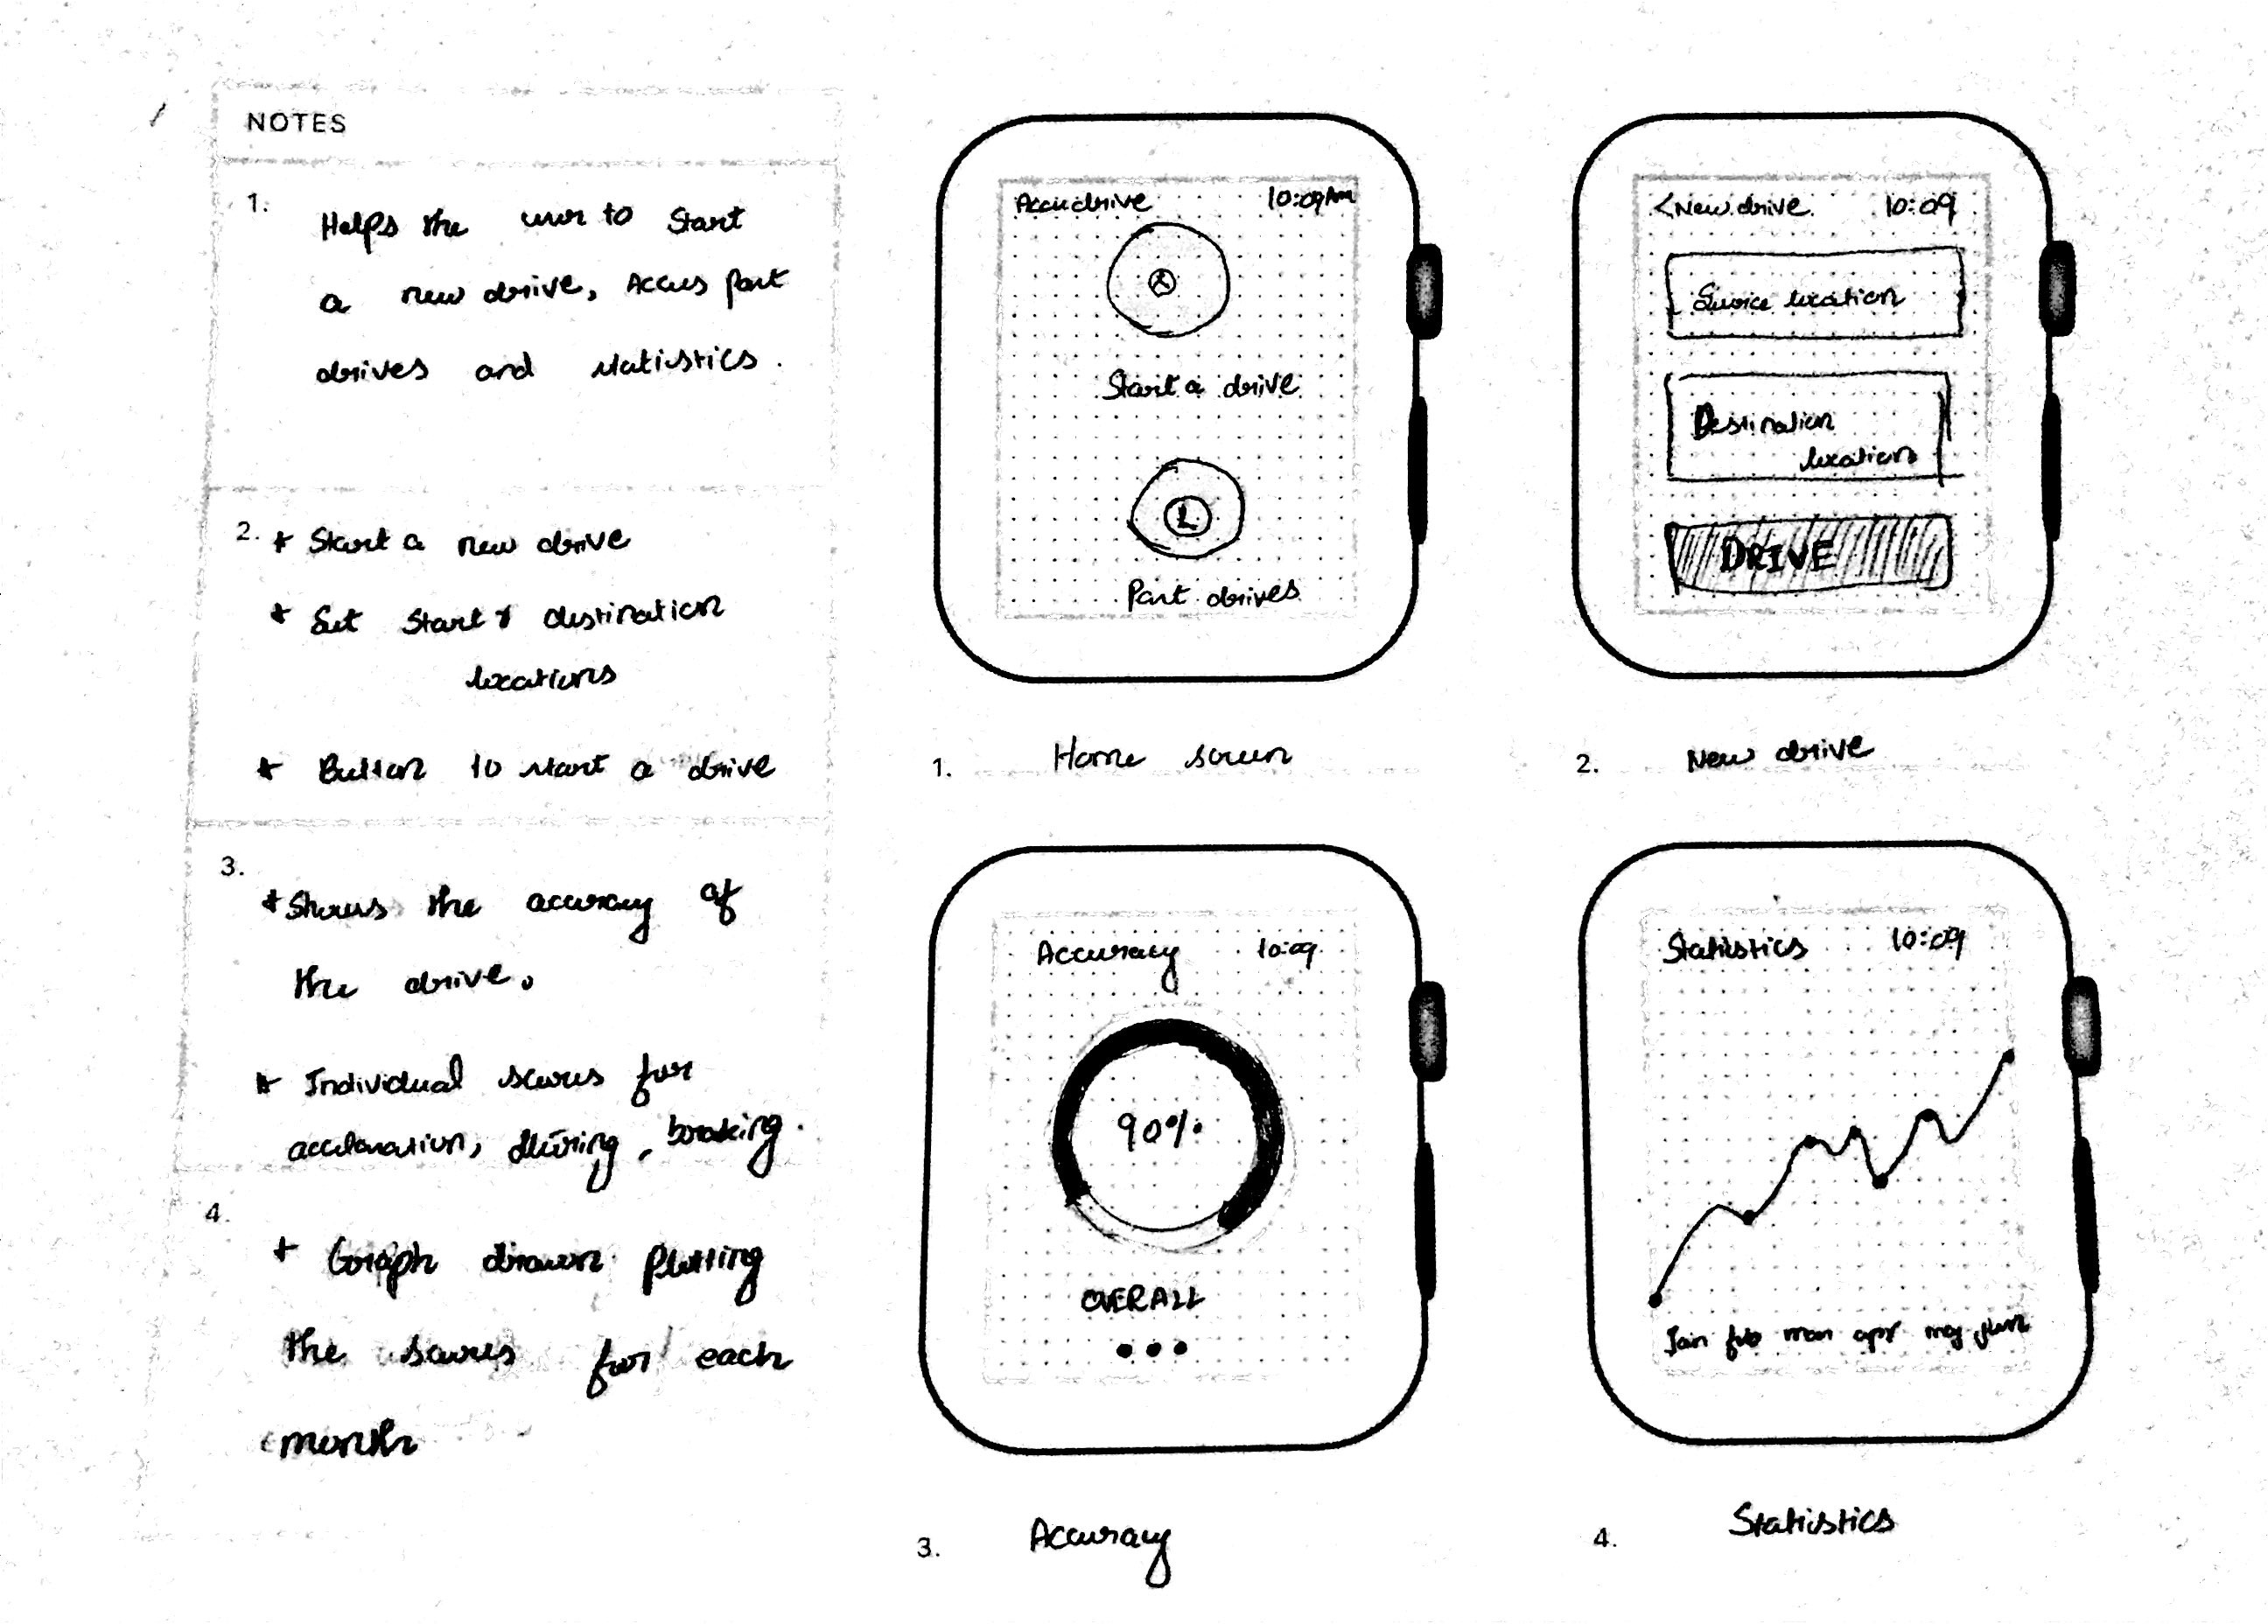 NOTES
1.
Helps the user to start
a new drive, Access past
drives and statistics.
2. * Start a new drive
* Set start & destination
locations
* Button to start a drive
3.
* Shows the accuracy of
the drive.
* Individual scores for
acceleration, steering, braking.
4.
* Graph drawn plotting
the scores for each
month
Accudrive 10:09 AM
Start a drive
Past drives
1. Home screen
< New drive 10:09
Source location
Destination
location
DRIVE
2. New drive
Accuracy 10:09
90%
OVERALL
3. Accuracy
Statistics 10:09
Jan feb mar apr may jun
4. Statistics